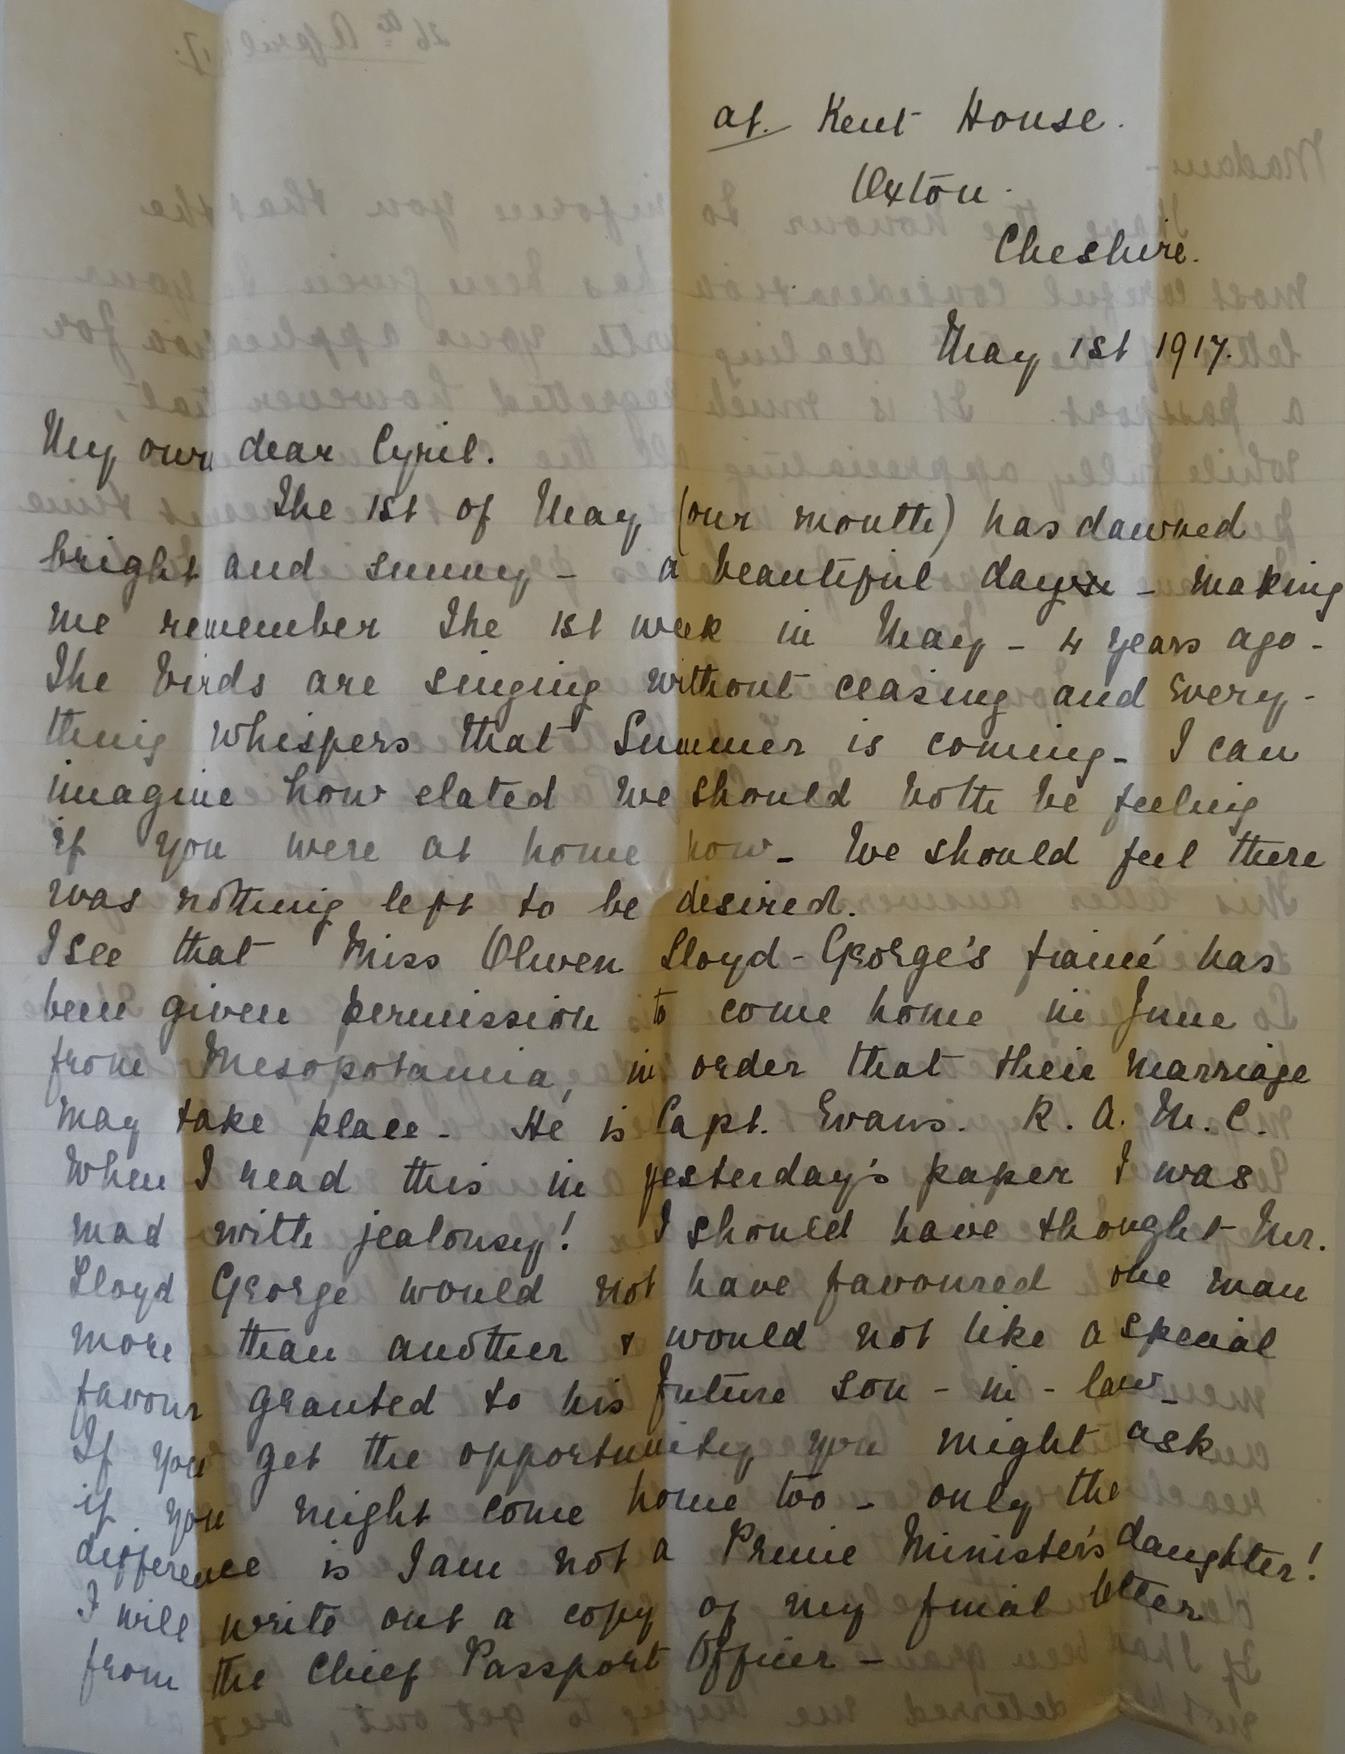 at. Kent House.
Oxton.
Cheshire.
May 1st 1917.
My own dear Cyril.
The 1st of May (our month) has dawned
bright and sunny – a beautiful day – making
me remember the 1st week in May – 4 years ago –
The birds are singing without ceasing and every-
thing whispers that Summer is coming – I can
imagine how elated we should both be feeling
if you were at home now – We should feel there
was nothing left to be desired.
I see that Miss Olwen Lloyd-George's fiancé has
been given permission to come home, in June
from Mesopotamia, in order that their marriage
may take place – He is Capt. Evans. R.A.M.C.
When I read this in yesterday's paper I was
mad with jealousy! I should have thought Mr.
Lloyd George would not have favoured one man
more than another & would not like a special
favour granted to his future son-in-law –
If you get the opportunity you might ask
if you might come home too – only the
difference is I am not a Prime Minister's daughter!
I will write out a copy of my final letter
from the Chief Passport Officer –